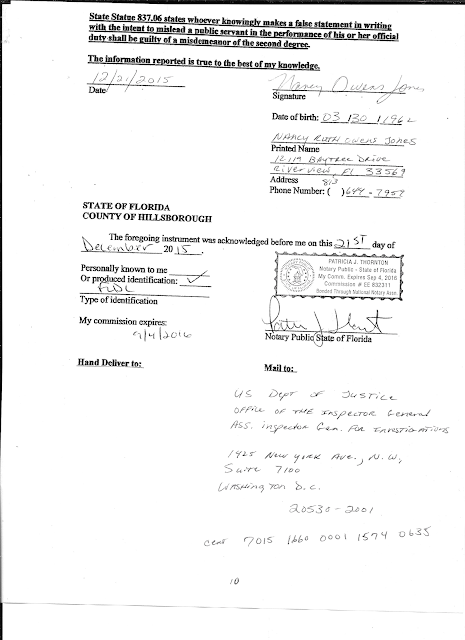 State Statue 837.06 states whoever knowingly makes a false statement in writing
with the intent to mislead a public servant in the performance of his or her official
duty shall be guilty of a misdemeanor of the second degree.
The information reported is true to the best of my knowledge.
12/21/2015
Date
Nancy Owens Jones
Signature
Date of birth: 03 130 1196 2
NANCY RUTH OWENS JONES
Printed Name
12119 BAYTREE DRIVE
Riverview, Fl 33569
Address
813
Phone Number: ( ) 649-7957
STATE OF FLORIDA
COUNTY OF HILLSBOROUGH
The foregoing instrument was acknowledged before me on this 21ST day of
December 2015.
Personally known to me
Or produced identification: ✓
FLDL
Type of identification
PATRICIA J. THORNTON
Notary Public - State of Florida
My Comm. Expires Sep 4, 2016
Commission # EE 832311
Bonded Through National Notary Assn.
My commission expires:
9/4/2016
Notary Public State of Florida
Hand Deliver to:
Mail to:
US Dept of Justice
OFFICE OF THE INSPECTOR General
ASS. inspector Gen. FOR INVESTIGATIONS
1425 New York Ave., N.W,
Suite 7100
WASHINGTON D.C.
20530-2001
cert 7015 1660 0001 1574 0635
10